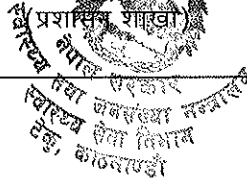 (प्रशासन शाखा)
नेपाल सरकार
स्वास्थ्य तथा जनसंख्या मन्त्रालय
स्वास्थ्य सेवा विभाग
टेकु, काठमाण्डौं